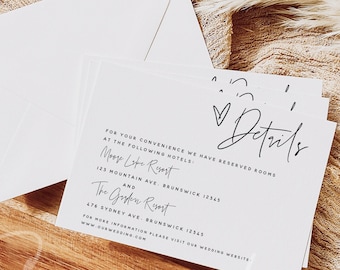 Details
FOR YOUR CONVENIENCE WE HAVE RESERVED ROOMS
AT THE FOLLOWING HOTELS:
Moose Lake Resort
123 MOUNTAIN AVE. BRUNSWICK 12345
AND
The Garden Resort
456 SYDNEY AVE. BRUNSWICK 12345
FOR MORE INFORMATION PLEASE VISIT OUR WEDDING WEBSITE:
WWW.OURWEDDING.COM